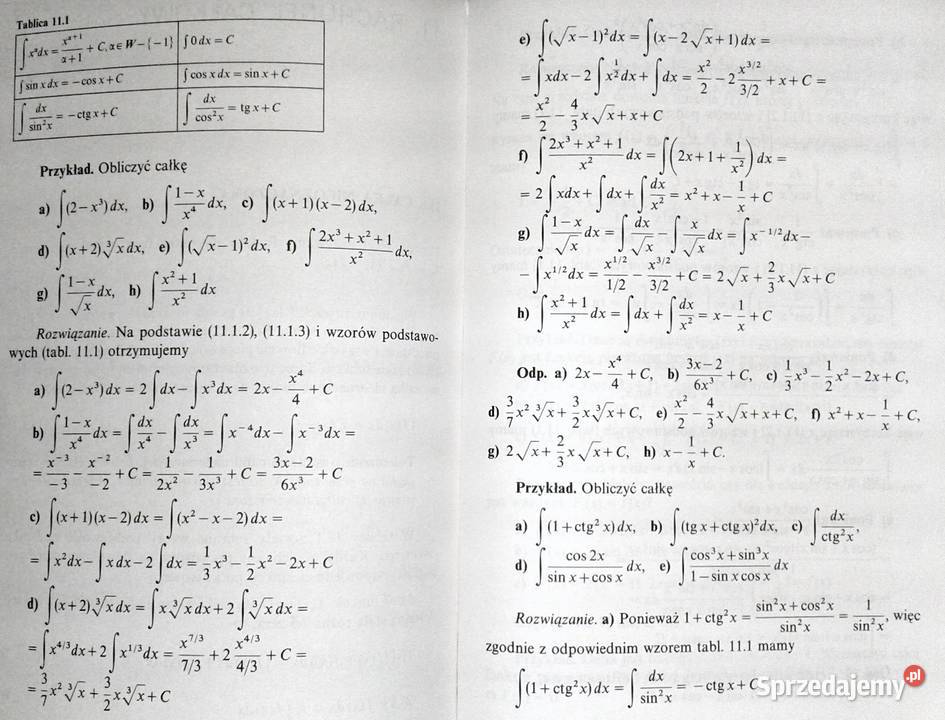 Tablica 11.1
∫xᵅdx = x^(α+1)/(α+1) + C, α∈W−{−1} | ∫0 dx = C
∫sin x dx = −cos x + C | ∫cos x dx = sin x + C
∫dx/sin²x = −ctg x + C | ∫dx/cos²x = tg x + C
Przykład. Obliczyć całkę
a) ∫(2−x³)dx, b) ∫(1−x)/x⁴ dx, c) ∫(x+1)(x−2)dx,
d) ∫(x+2)∛x dx, e) ∫(√x−1)²dx, f) ∫(2x³+x²+1)/x² dx,
g) ∫(1−x)/√x dx, h) ∫(x²+1)/x² dx
Rozwiązanie. Na podstawie (11.1.2), (11.1.3) i wzorów podstawo-
wych (tabl. 11.1) otrzymujemy
a) ∫(2−x³)dx = 2∫dx−∫x³dx = 2x−x⁴/4+C
b) ∫(1−x)/x⁴ dx = ∫dx/x⁴−∫dx/x³ = ∫x⁻⁴dx−∫x⁻³dx =
= x⁻³/−3 − x⁻²/−2 + C = 1/2x² − 1/3x³ + C = (3x−2)/6x³ + C
c) ∫(x+1)(x−2)dx = ∫(x²−x−2)dx =
= ∫x²dx−∫x dx−2∫dx = 1/3 x³−1/2 x²−2x+C
d) ∫(x+2)∛x dx = ∫x∛x dx+2∫∛x dx =
= ∫x^(4/3)dx+2∫x^(1/3)dx = x^(7/3)/(7/3)+2 x^(4/3)/(4/3)+C =
= 3/7 x²∛x+3/2 x∛x+C
e) ∫(√x−1)²dx = ∫(x−2√x+1)dx =
= ∫xdx−2∫x^(1/2)dx+∫dx = x²/2−2 x^(3/2)/(3/2)+x+C =
= x²/2−4/3 x√x+x+C
f) ∫(2x³+x²+1)/x² dx = ∫(2x+1+1/x²)dx =
= 2∫xdx+∫dx+∫dx/x² = x²+x−1/x+C
g) ∫(1−x)/√x dx = ∫dx/√x−∫x/√x dx = ∫x^(−1/2)dx−
−∫x^(1/2)dx = x^(1/2)/(1/2)−x^(3/2)/(3/2)+C = 2√x+2/3 x√x+C
h) ∫(x²+1)/x² dx = ∫dx+∫dx/x² = x−1/x+C
Odp. a) 2x−x⁴/4+C, b) (3x−2)/6x³+C, c) 1/3 x³−1/2 x²−2x+C,
d) 3/7 x²∛x+3/2 x∛x+C, e) x²/2−4/3 x√x+x+C, f) x²+x−1/x+C,
g) 2√x+2/3 x√x+C, h) x−1/x+C.
Przykład. Obliczyć całkę
a) ∫(1+ctg²x)dx, b) ∫(tg x+ctg x)²dx, c) ∫dx/ctg²x,
d) ∫cos 2x/(sin x+cos x) dx, e) ∫(cos³x+sin³x)/(1−sin x cos x) dx
Rozwiązanie. a) Ponieważ 1+ctg²x = (sin²x+cos²x)/sin²x = 1/sin²x, więc
zgodnie z odpowiednim wzorem tabl. 11.1 mamy
∫(1+ctg²x)dx = ∫dx/sin²x = −ctg x+C
Sprzedajemy.pl